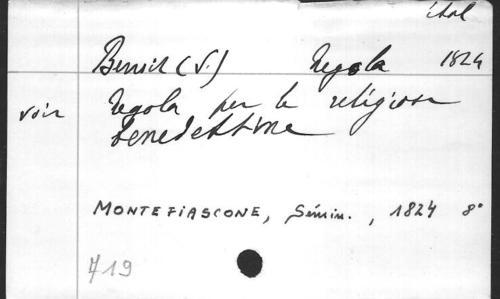 ital
Benoit (S.) Regola 1824
voir Regola per le religiose
benedettine
MONTEFIASCONE, Sémin., 1824 8°
719